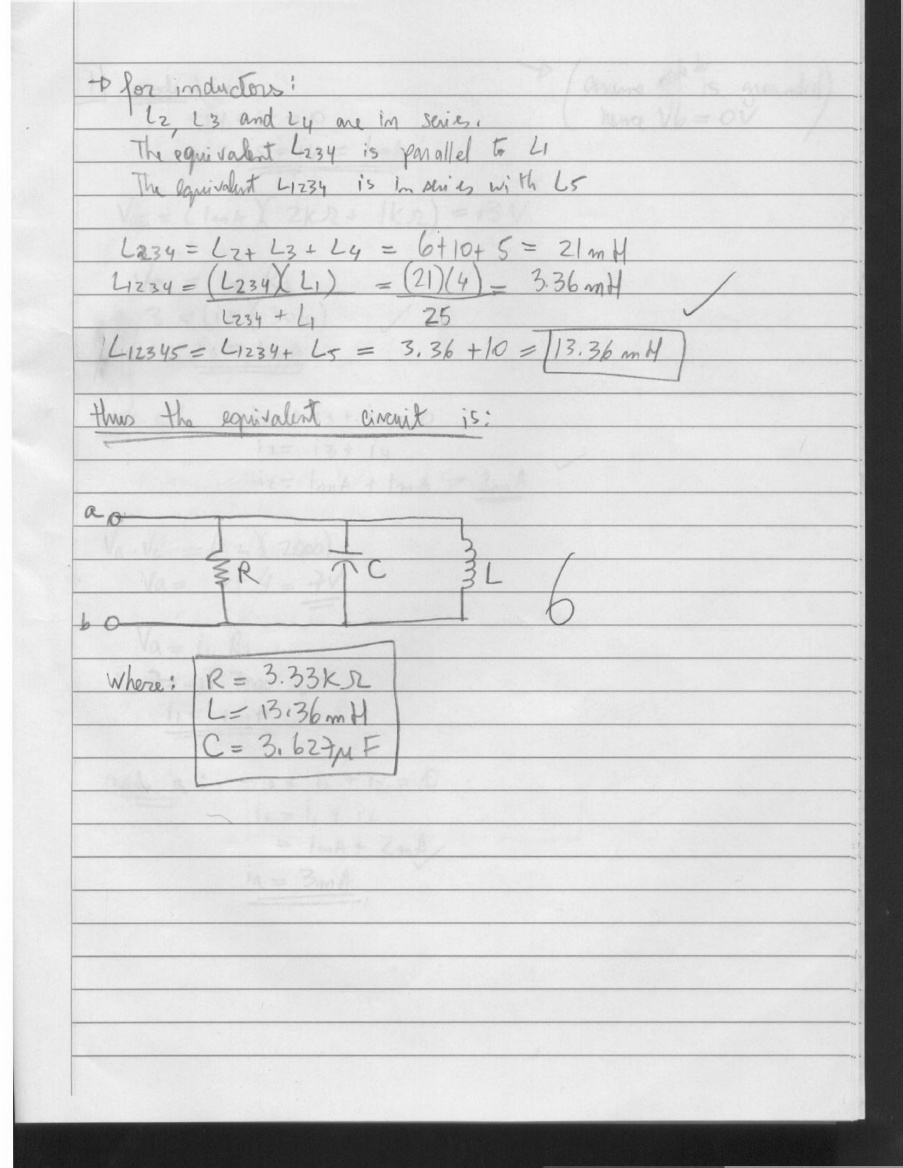 → for inductors:
L2, L3 and L4 are in series.
The equivalent L234 is parallel to L1
The equivalent L1234 is in series with L5
L234 = L2 + L3 + L4 = 6+10+5 = 21 mH
L1234 = (L234)(L1) / L234 + L1 = (21)(4) / 25 = 3.36 mH
L12345 = L1234 + L5 = 3.36 + 10 = 13.36 mH
thus the equivalent circuit is:
a
R C L 6
b
Where: R = 3.33 KΩ
L = 13.36 mH
C = 3.627 μF